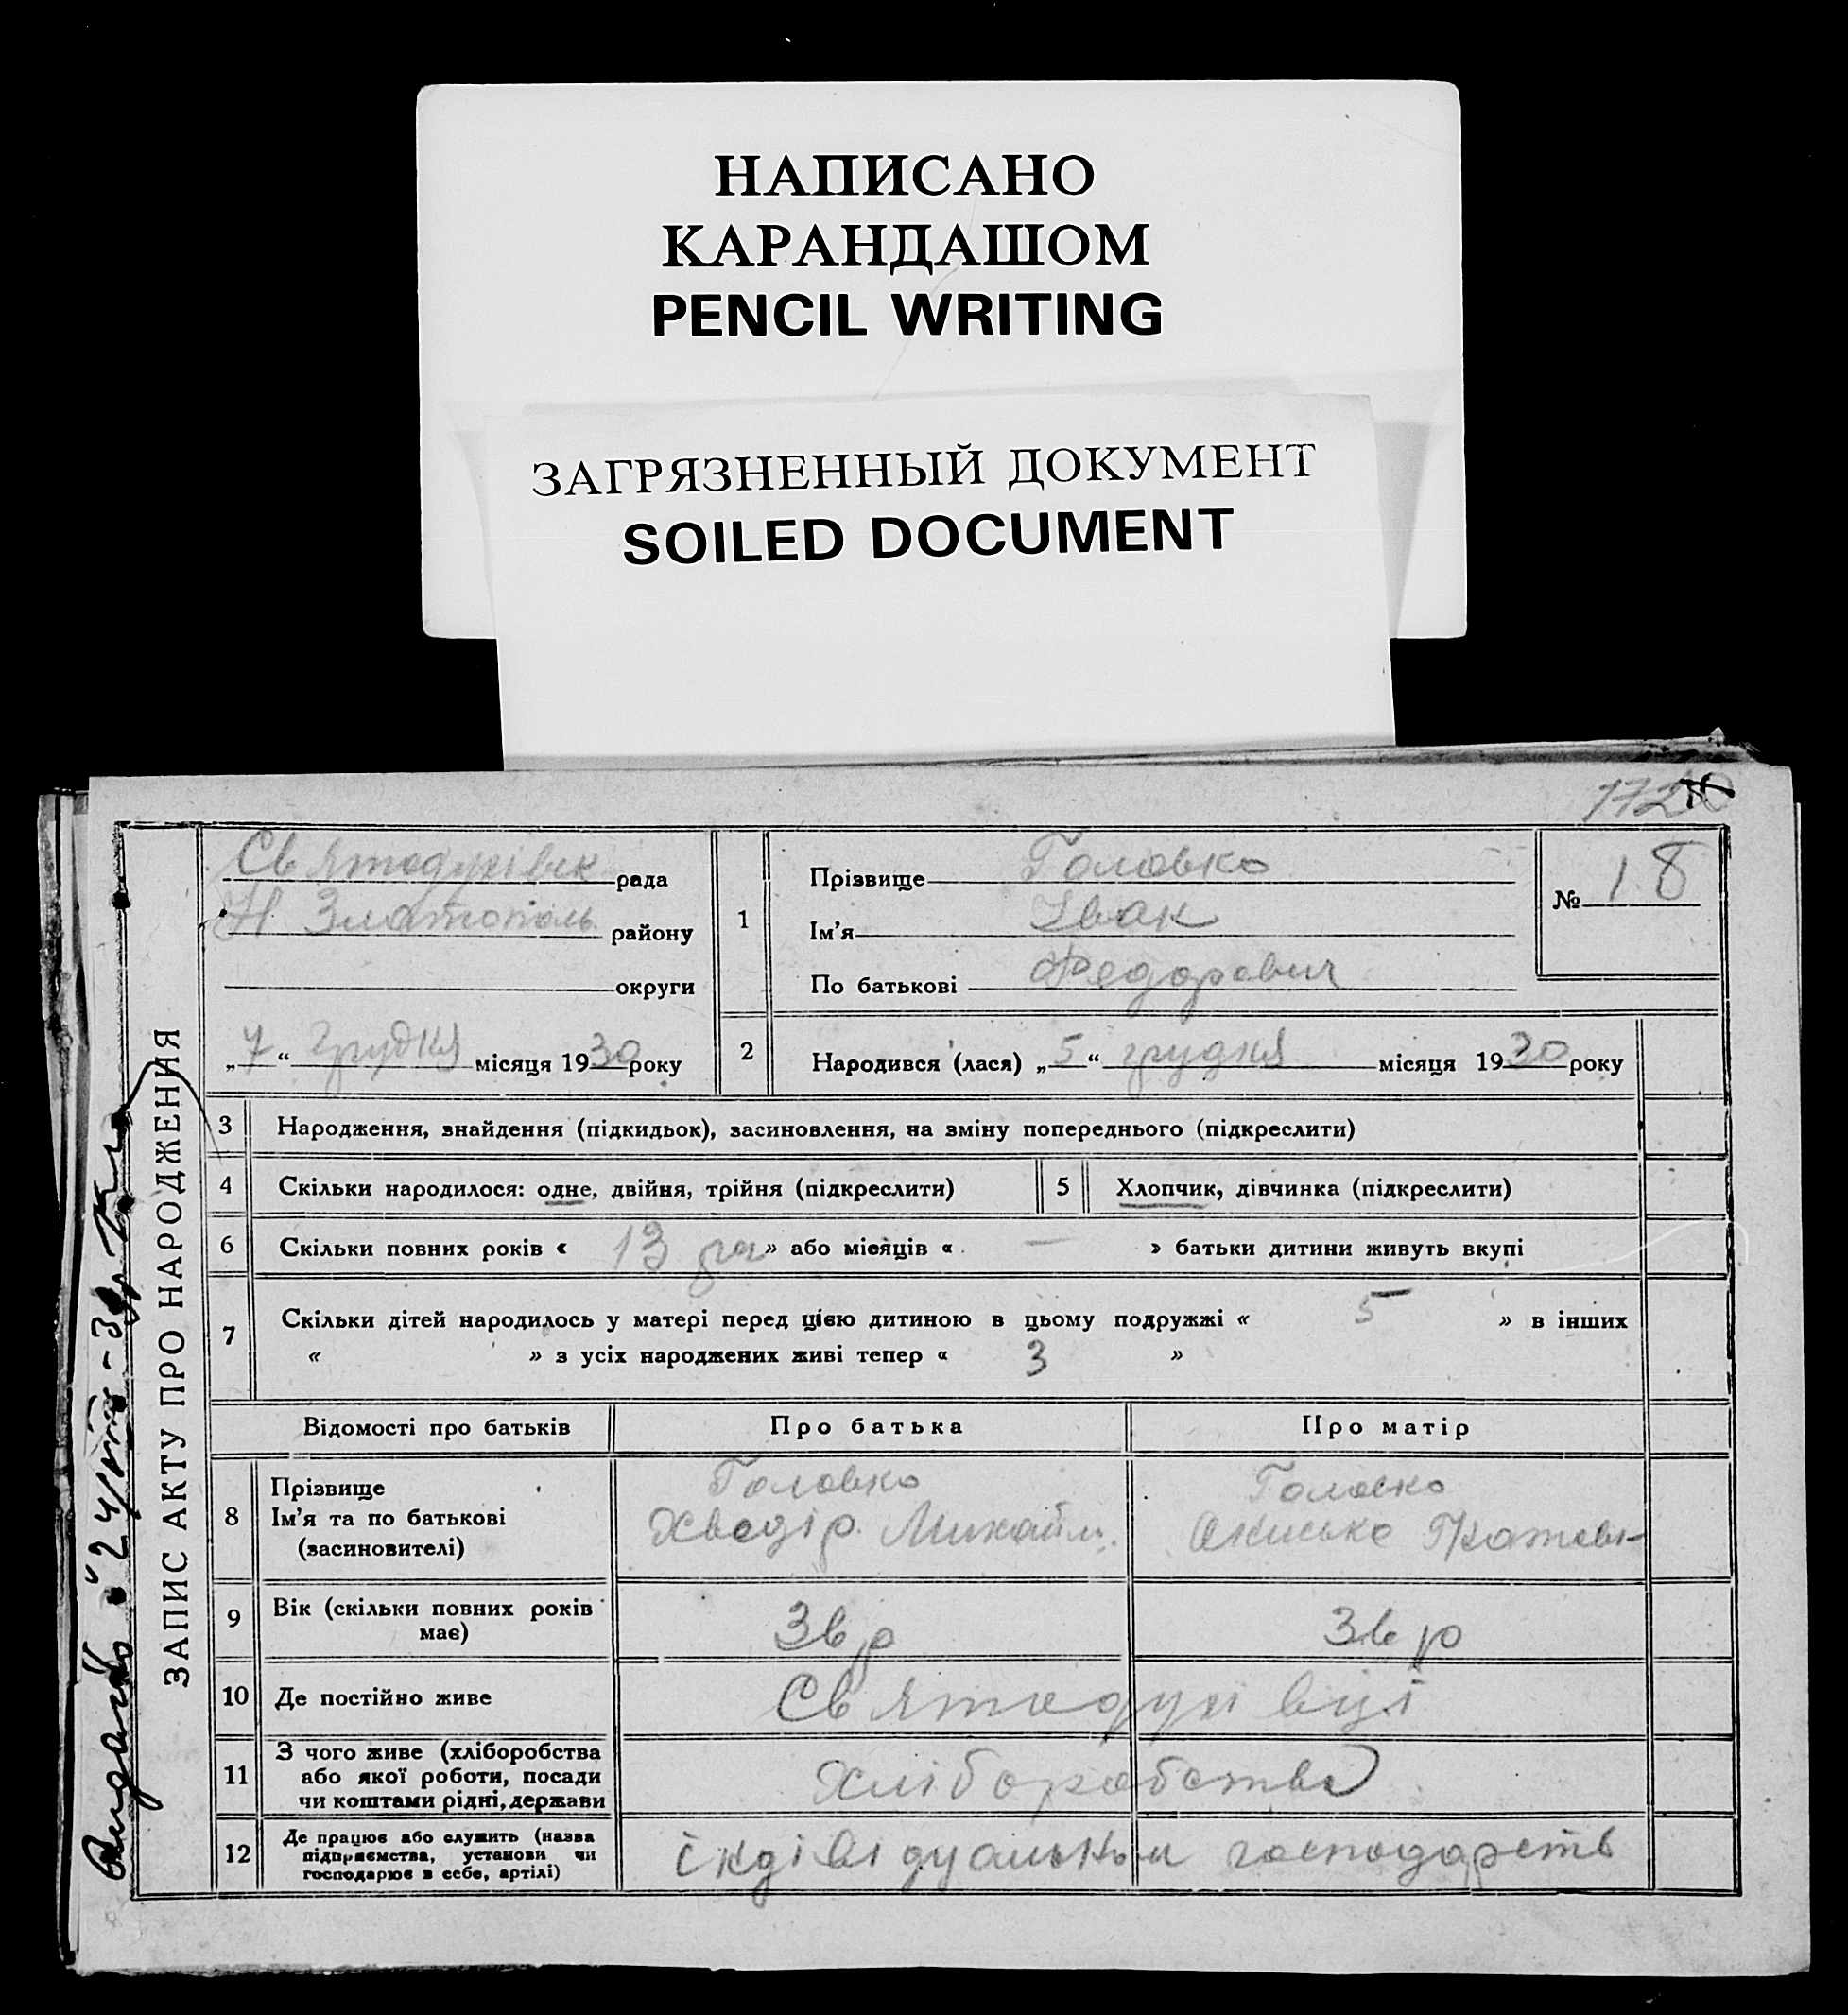 НАПИСАНО
КАРАНДАШОМ
PENCIL WRITING
ЗАГРЯЗНЕННЫЙ ДОКУМЕНТ
SOILED DOCUMENT
172
ЗАПИС АКТУ ПРО НАРОДЖЕННЯ
Св'ятодухівськ рада
Н Златополь району
округи
„7“ грудня місяця 1930 року
1
Прізвище Головко
Ім'я Іван
По батькові Федорович
№ 18
2 Народився (лася) „5“ грудня місяця 1930 року
3 Народження, знайдення (підкидьок), засиновлення, на зміну попереднього (підкреслити)
4 Скільки народилося: одне, двійня, трійня (підкреслити) 5 Хлопчик, дівчинка (підкреслити)
6 Скільки повних років « 13 » або місяців « — » батьки дитини живуть вкупі
7 Скільки дітей народилось у матері перед цією дитиною в цьому подружжі « 5 » в інших
« » з усіх народжених живі тепер « 3 »
Відомості про батьків Про батька Про матір
8 Прізвище Головко Головко
Ім'я та по батькові Хведір Михайл.
(засиновителі)
9 Вік (скільки повних років має) 36 р 36 р
10 Де постійно живе Св'ятодухівці
11 З чого живе (хліборобства
або якої роботи, посади хліборобства
чи коштами рідні, держави
12 Де працює або служить (назва
підприємства, установи чи індівідуальном господарств
господарює в себе, артілі)